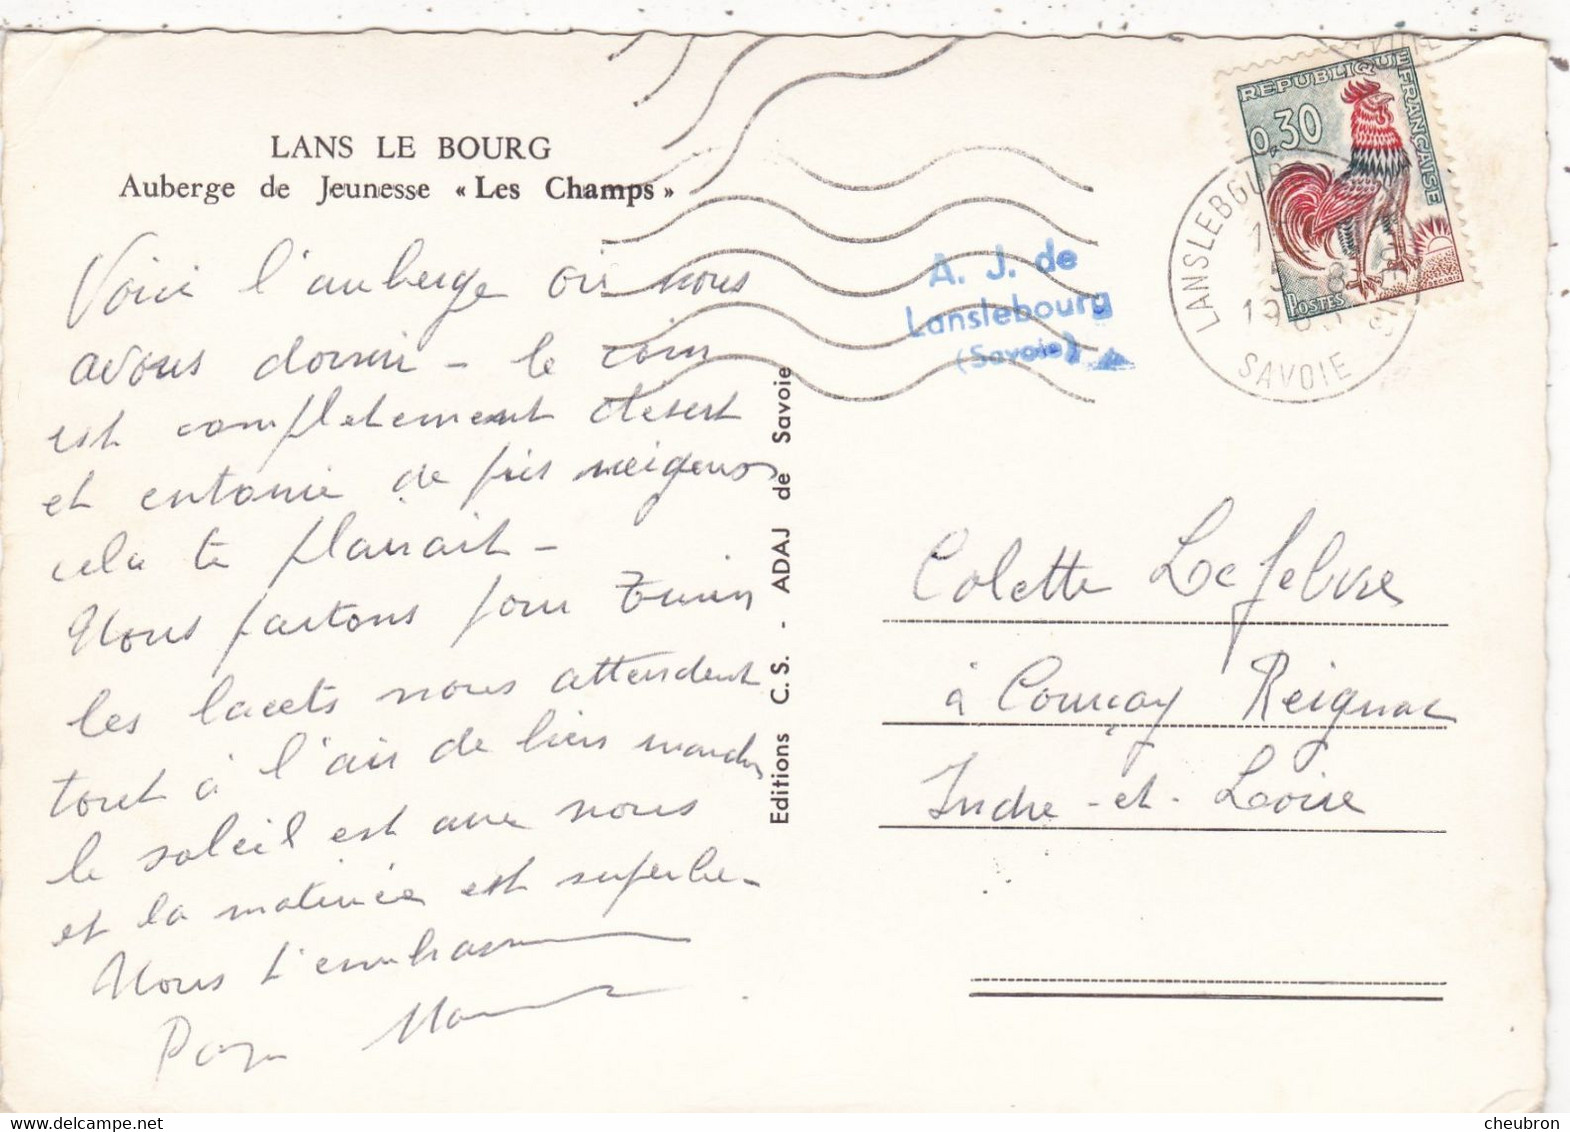 LANS LE BOURG
Auberge de Jeunesse « Les Champs »
Voici l'auberge où nous
avons dormi - le coin
est completement desert
et entouré de pics neigeux
cela te plairait -
Nous partons pour Turin
les lacets nous attendent
tout à l'air de bien marcher
le soleil est avec nous
et la matinée est superbe -
Nous t'embrassons
Papa Maman
Editions C. S. - ADAJ de Savoie
A. J. de
Lanslebourg
(Savoie)
REPUBLIQUE FRANÇAISE
0,30
POSTES
LANSLEBOURG
5-8
SAVOIE
Colette Lefebvre
à Courçay Reignac
Indre-et-Loire
cheubron